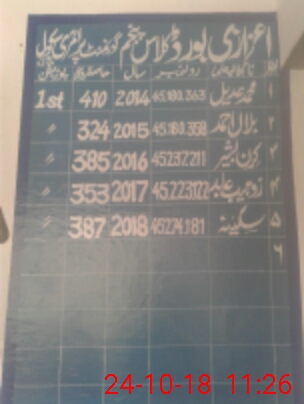 اعزازی بورڈ کلاس پنجم گورنمنٹ پرائمری سکول
نام طالب علم رولنمبر سال حاصل کردہ پوزیشن
۱ محمد عدیل 45.180.363 2014 410 1st
۲ بلال احمد 45.180.358 2015 324 〃
۳ کرن بشیر 45237.211 2016 385 〃
۴ زوہیب عابد 45.223122 2017 353 〃
۵ سکینہ 45274.181 2018 387 〃
۶
24-10-18 11:26